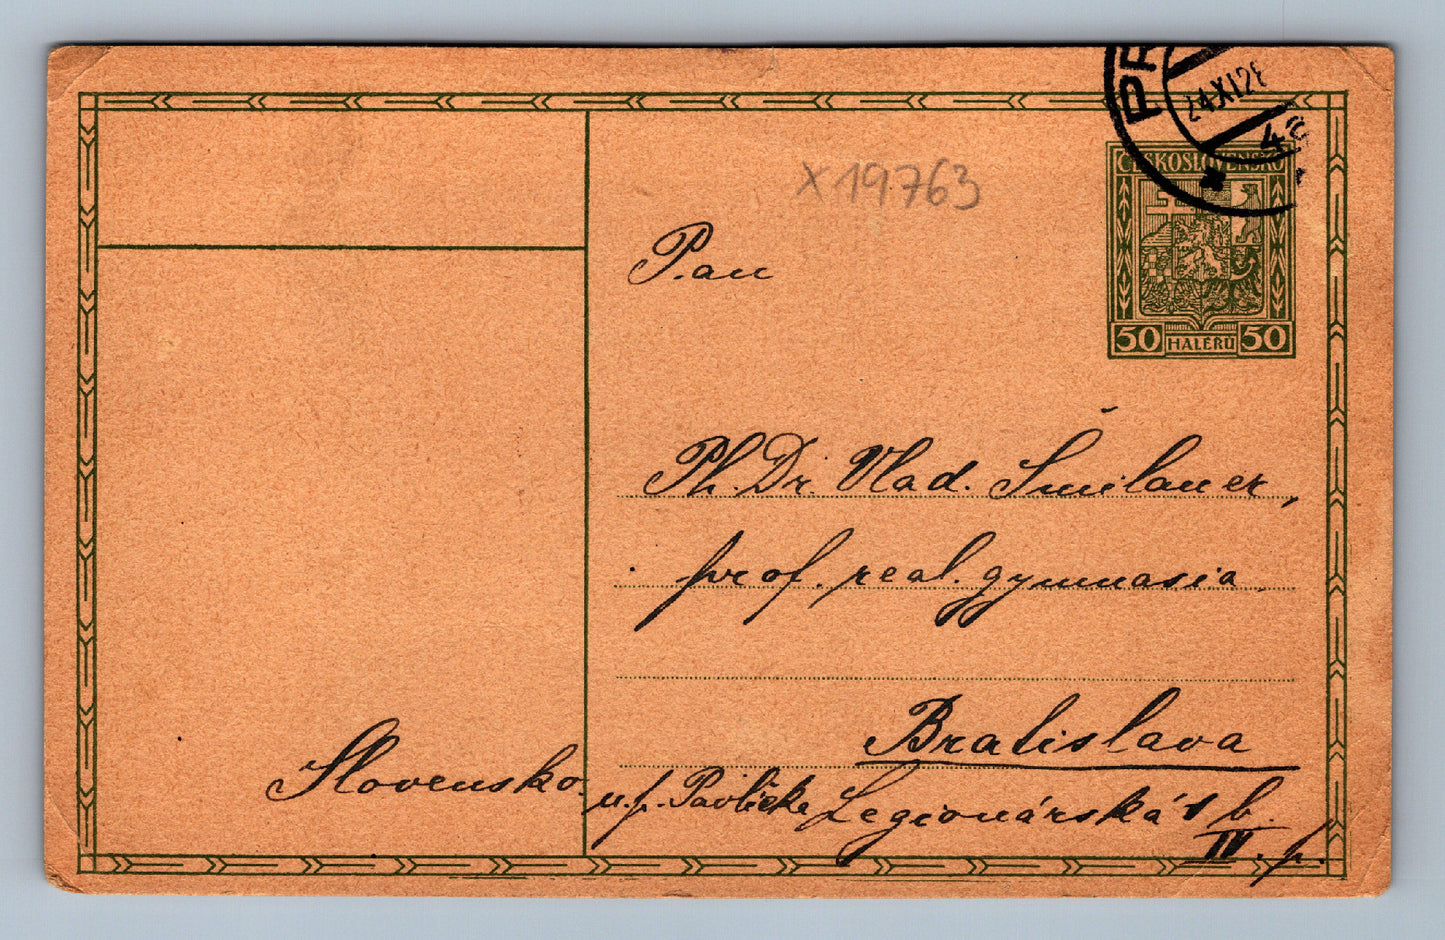 PR
24.XI.2
4
X19763
ČESKOSLOVENSKO
50 HALÉŘŮ 50
Pan
Ph. Dr. Vlad. Šmilauer,
prof. real. gymnasia
Bratislava
Slovensko. u p. Pavlíčka Legionárská 1 b.
IV. p.